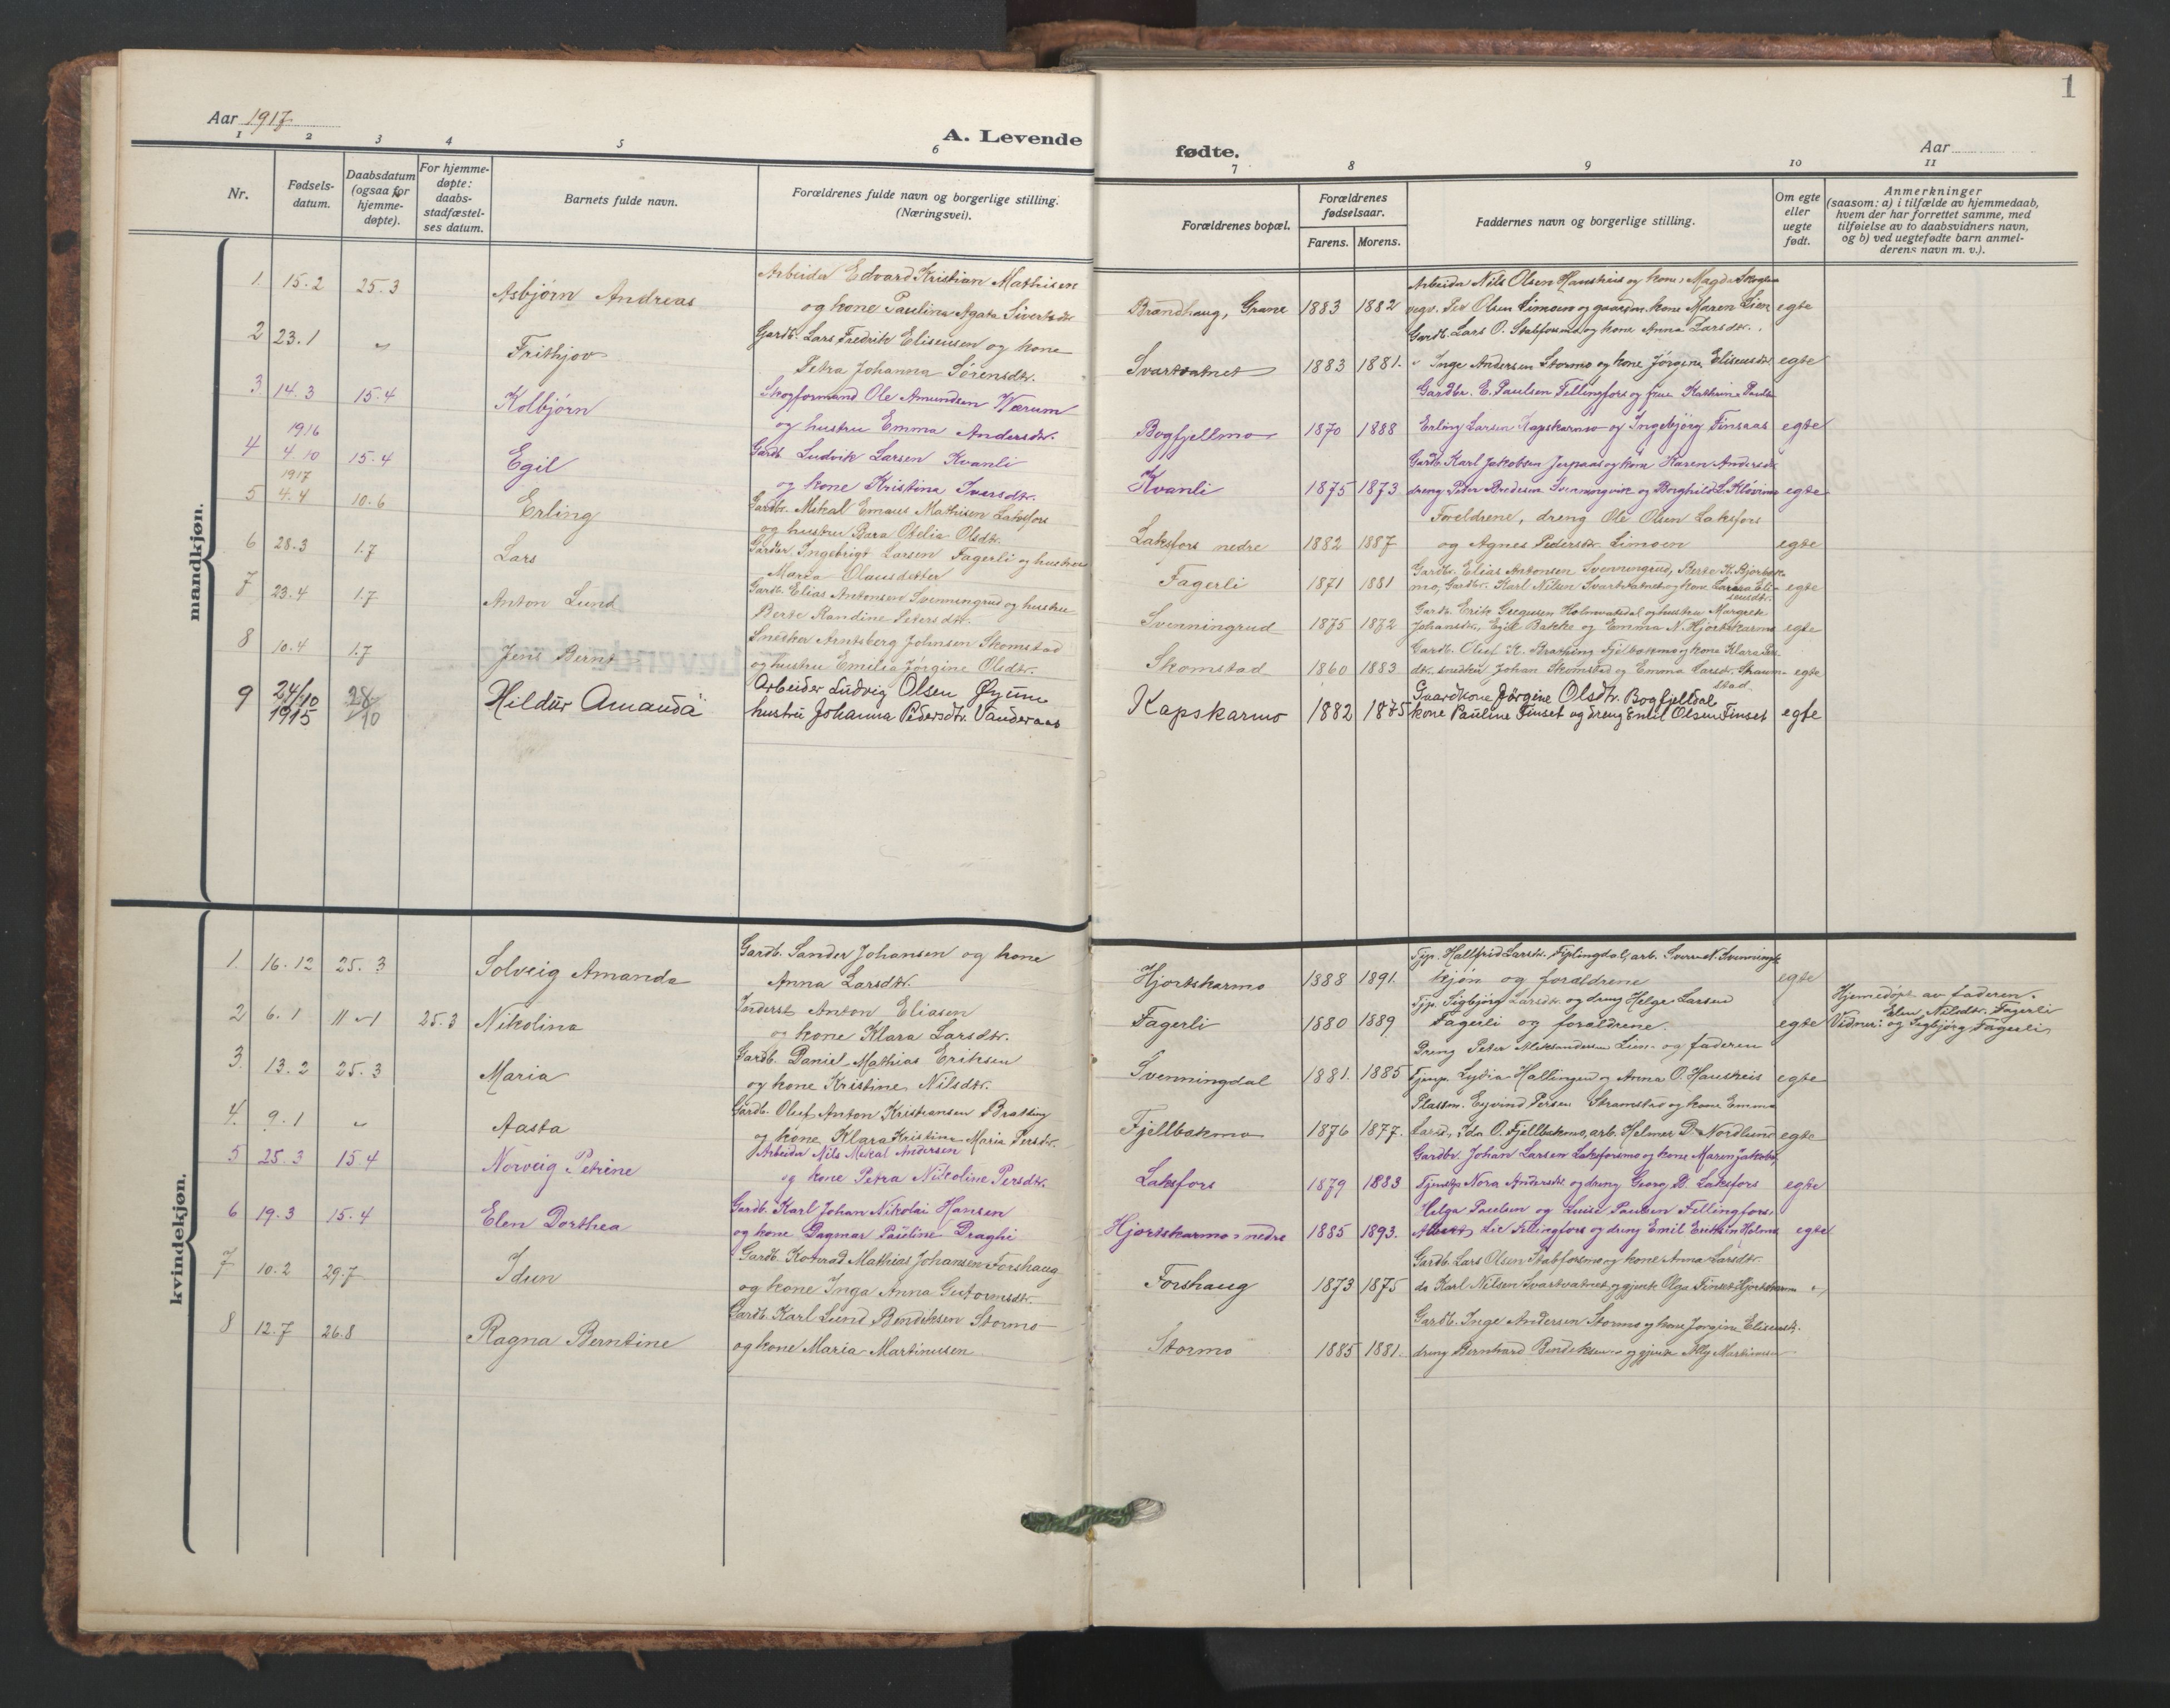 1
Aar 1917
A. Levende fødte.
Aar
1 2 3 4 5 6 7 8 9 10 11
Nr.
Fødsels-
datum.
Daabsdatum
(ogsaa for
hjemme-
døpte).
For hjemme-
døpte:
daabs-
stadfæstel-
ses datum.
Barnets fulde navn.
Forældrenes fulde navn og borgerlige stilling.
(Næringsvei).
Forældrenes bopæl.
Forældrenes
fødselsaar.
Farens. Morens.
Faddernes navn og borgerlige stilling.
Om egte
eller
uegte
født.
Anmerkninger
(saasom: a) i tilfælde av hjemmedaab,
hvem der har forrettet samme, med
tilføielse av to daabsvidners navn,
og b) ved uegtefødte barn anmel-
derens navn m. v.).
mandkjøn.
1. 15.2 25.3 Asbjørn Andreas
Arbeider Edvard Kristian Mathisen
og kone Paulina Agata Sivertsdtr.
Brandhaug, Grane 1883 1882
Arbeider Nils Olsen Hauskeis og kone, Magda
Per Olsen Simoen og gaardm. kone Maren Lien egte
2 23.1 " Frithjov
Gardb. Lars Fredrik Eliseusen og kone
Petra Johanna Sørensdtr.
Svartvatnet 1883 1881.
Gardb. Lars O. Stabforsmo og kone Anna Larsdtr.,
" Inge Andersen Stormo og kone Jørgine Eliseusdtr. egte
3 14.3 15.4 Kolbjørn
Skogformand Ole Amundsen Wærum
og hustru Emma Andersdtr.
Bogfjellmo 1870 1888
Gardbr. E. Paulsen Fellingfors og frue Kathrine
Erling Larsen Kapskarmo og Ingebjørg Finsaas egte
4 1916
4.10 15.4 Egil
Gardb. Ludvik Larsen Kvanli
og kone Kristina Iversdtr.
Kvanli 1875 1873
Gardb. Karl Jakobsen Jerpaas og kone Karen Andersdtr.
dreng Peter Svenningvik og Borghild L. egte
5 1917
4.4 10.6 Erling
Gardbr. Mikal Emaus Mathisen Laksfors
og hustru Bara Otelia Olsdtr.
Laksfors nedre 1882 1887
Foreldrene, dreng Ole Olsen Laksfors
og Agnes Pedersdtr. Simoen egte
6 28.3 1.7 Lars
Gardbr. Ingebrigt Larsen Fagerli og hustru
Maria Olausdatter
Fagerli 1871 1881
Gardb. Elias Antonsen Svenningrud, Berte K. Bjorbæk-
mo, Gardbr. Karl Nilsen Svartvatnet og kone Larsina Eli-
seusdtr. egte
7 23.4 1.7 Anton Lund
Gardb. Elias Antonsen Svenningrud og hustru
Berte Randine Petersdtr.
Svenningrud 1875 1872
Gardb. Erik Gregusen Holmvatsdal og hustru Margrete
Johansdtr., Egil Bakke og Emma N. Hjortskarmo egte
8 10.4 1.7 Jens Bernt
Snedker Arntsberg Johnsen Skomstad
og hustru Emilia Jørgine Olsdtr.
Skomstad 1860 1883
Gardb. Oluf K. Bratting Fjelbækmo og kone Klara
dtr. snedker Johan Skomstad og Emma Larsdtr.
stad. egte
9 24/10
1915 28/10 Hildur Amanda
Arbeider Ludvig Olsen Øyum
hustru Johanna Pedersdtr. Vanderaas
Kapskarmo 1882 1875
Gaardkone Jørgine Olsdtr. Bogfjelldal
kone Pauline Finset og dreng Emil Olsen Finset egte
kvindekjøn.
1. 16.12 25.3 Solveig Amanda
Gardb. Sander Johansen og kone
Anna Larsdtr.
Hjortskarmo 1888 1891.
Tjp. Hallfrid Larsdtr. Fiplingdal, arb. Sverre N. Svenning-
kjøn og forældrene egte
2 6.1 11-1 25.3 Nikolina
Inderst Anton Eliasen
og kone Klara Larsdtr.
Fagerli 1880 1889
Tjp. Sigbjørg Larsdtr. og dreng Helge Larsen
Fagerli og foraldrene. egte
Hjemedøpt av faderen.
Vidner: Elen Nilsdtr. Fagerli
og Sigbjørg Fagerli
3. 13.2 25.3 Maria
Gardb. Daniel Mathias Eriksen
og kone Kristine Nilsdtr.
Svenningdal 1881. 1885
Dreng Peter Aleksandersen Lien og faderen
Tjenp. Lydia Hallingen og Anna O. Hauskeis egte
4. 9.1 " Aasta
Gardb. Oluf Anton Kristiansen Bratting
og kone Klara Kristine Maria Persdtr.
Fjellbækmo 1876 1877.
Plassm. Eyvind Persen Skramstad og kone Emma
Ida O. Fjellbækmo, arb. Helmer D. Nordlund egte
5 25.3 15.4 Norveig Petrine
Arbeider Nils Mikal Andersen
og kone Petra Nikoline Persdtr.
Laksfors 1879 1883
Gardbr. Johan Larsen Laksforsmo og kone Maren Jakobs.
Tjenstp Nora Andersdtr. og dreng Georg B. Laksfors egte
6 19.3 15.4 Elen Dorthea
Gardb. Karl Johan Nikolai Hansen
og kone Dagmar Pauline Draghi
Hjortskarmo nedre 1885 1893.
Helga Paulsen og Luise Paulsen Fellingfors,
Lie Fellingfors og dreng Emil Eriksen Holmv egte
7 10.2 29.7 Idun
Gardb. Konrad Mathias Johansen Forshaug
og kone Inga Anna Guttormsdtr.
Forshaug 1873 1875
Gardb. Lars Olsen Stabforsmo og kone Anna Larsdtr.
do Karl Nilsen Svartvatnet og gjente Olga Finset Hjortskarmo "
8 12.7 26.8 Ragna Berntine
Gardb. Karl Lund Bendiksen Stormo
og kone Maria Martinusen
Stormo 1885 1881.
Gardb. Inge Andersen Stormo og kone Jorgine Eliseusdtr.
dreng Bernhard Bendiksen og gjente Ally Martinusen